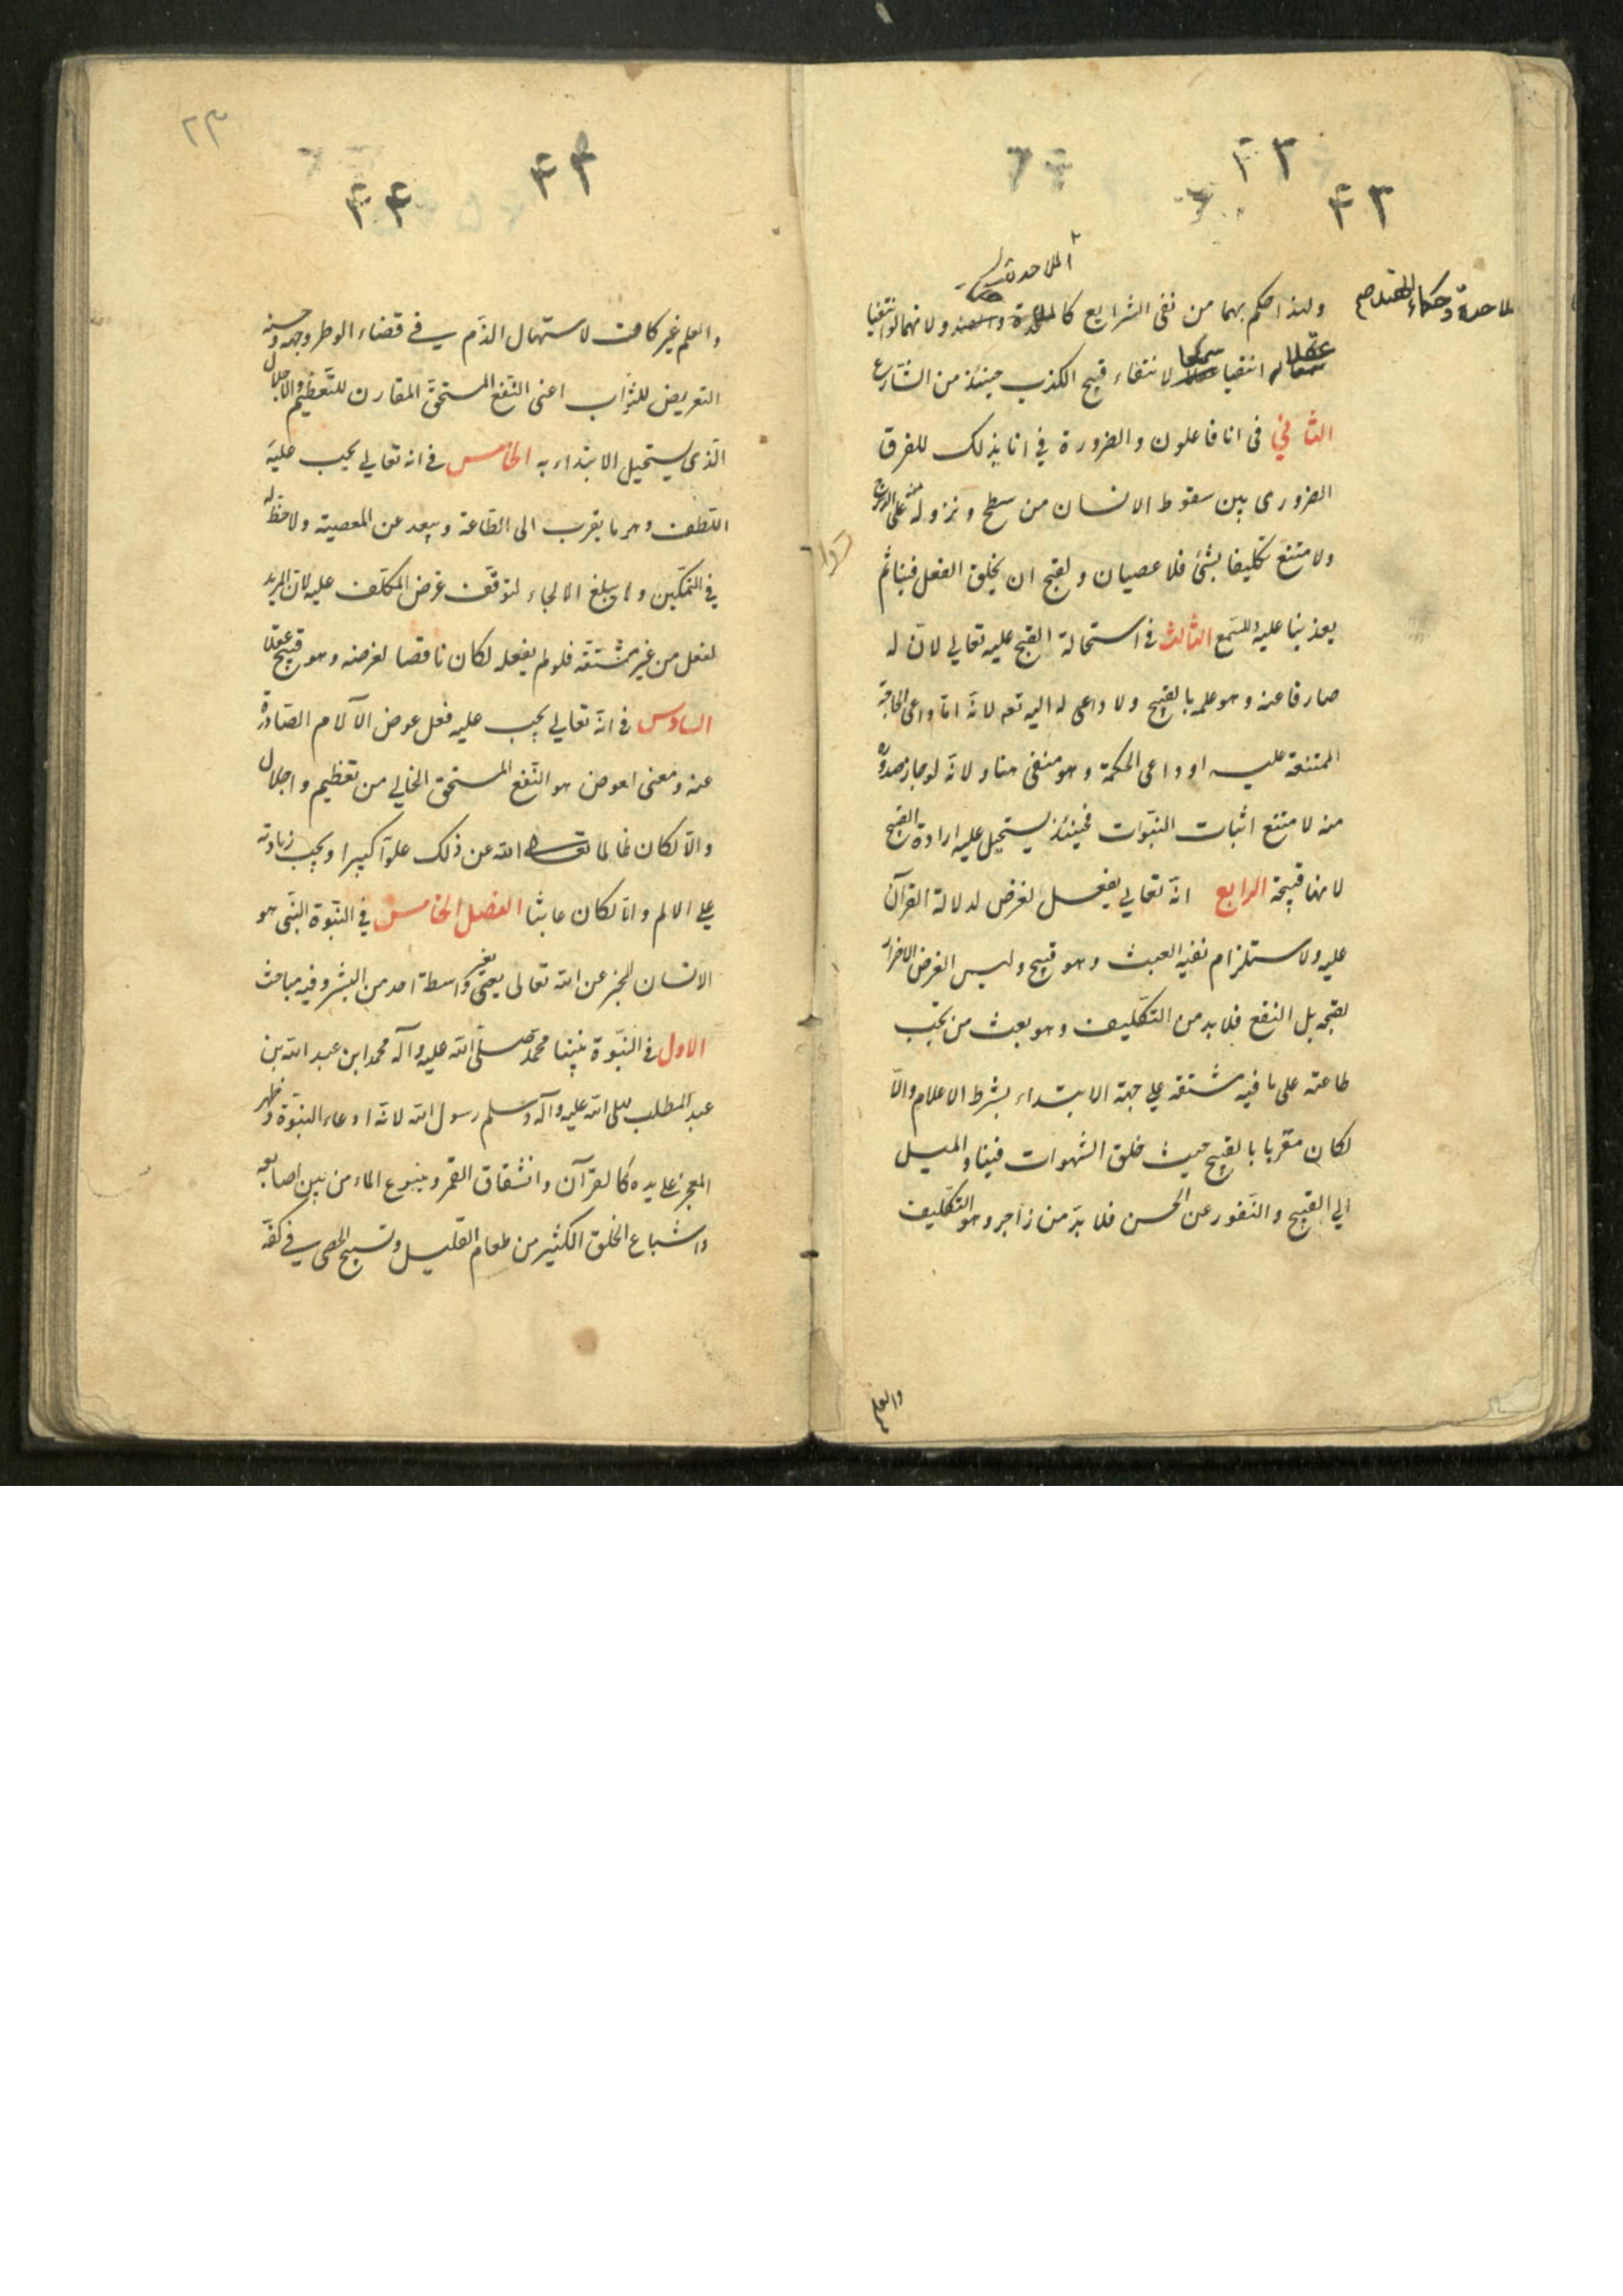 ٤٣
٤٣
الملاحدة
ملاحدة وحكماء الهند صح
ولهذا حكم بهما من نفى الشرايع كالملاحدة والهند ولانهما لو انتفيا
عقلا انتفيا سمعا لانتفاء قبح الكذب حينئذ من الشارع
الثاني فى انا فاعلون والضرورة في انا بذلك للفرق
الضرورى بين سقوط الانسان من سطح ونزوله منه على الدرج
ولامتنع تكليفنا بشئ فلا عصيان ولقبح ان يخلق الفعل فينا ثم
يعذبنا عليه وللسمع الثالث في استحالة القبح عليه تعالي لان له
صارفا عنه وهو علمه بالقبيح ولا داعى له اليه تعه لانه اما داعى الحاجة
الممتنعة عليه او داعى الحكمة وهو منفى هنا ولانه لو جاز صدوره
منه لامتنع اثبات النبوات فحينئذ يستحيل عليه ارادة القبيح
لانها قبيحة الرابع انه تعالي يفعل لغرض لدلالة القرآن
عليه ولاستلزام نفيه العبث وهو قبيح وليس الغرض الاضرار
لقبحه بل النفع فلا بد من التكليف وهو بعث من يجب
طاعته على ما فيه مشقة علي جهة الابتداء بشرط الاعلام والا
لكان مغريا بالقبيح حيث خلق الشهوات فينا والميل
الي القبيح والنفور عن الحسن فلا بد من زاجر وهو التكليف
والعلم
٢٣
٤٣
٤٤
والعلم غير كاف لاستهال الذم في قضاء الوطر وجهة حسنه
التعريض للثواب اعنى النفع المستحق المقارن للتعظيم والاجلال
الذى يستحيل الابتداء به الخامس في انه تعالي يجب عليه
اللطف وهو ما يقرب الى الطاعة ويبعد عن المعصية ولا حظ له
في التمكين ولا يبلغ الالجاء لتوقف غرض المكلف عليه لان المريد
لفعل من غير مشقة فلو لم يفعله لكان ناقضا لغرضه وهو قبيح عقلا
السادس في انه تعالي يجب عليه فعل عوض الآلام الصادرة
عنه ومعنى العوض هو النفع المستحق الخالي من تعظيم واجلال
والا لكان ظالما تعالى الله عن ذلك علوا كبيرا ويجب زيادته
علي الالم والا لكان عابثا الفصل الخامس في النبوة النبى هو
الانسان المخبر عن الله تعالى بغير واسطة احد من البشر وفيه مباحث
الاول في النبوة نبينا محمد صلى الله عليه وآله محمد ابن عبد الله بن
عبد المطلب صلى الله عليه وآله وسلم رسول الله لانه ادعاء النبوة وظهر
المعجز علي يده كالقرآن وانشقاق القمر وينبوع الماء من بين اصابعه
واشباع الخلق الكثير من طعام القليل وتسبيح الحصى في كفه